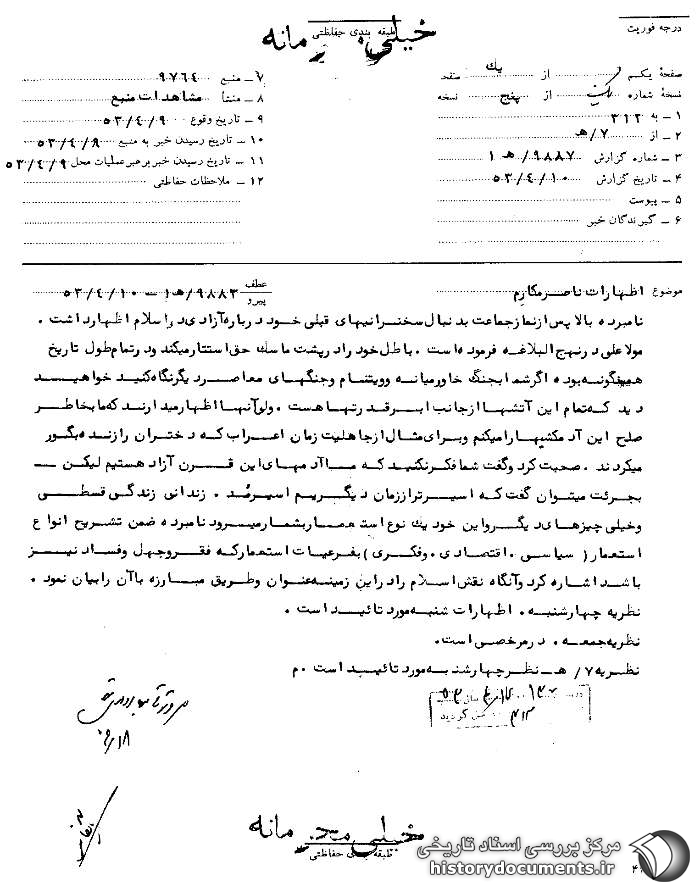 درجه فوریت
طبقه بندی حفاظتی
خیلی محرمانه
صفحهٔ یکم از یک صفحه
نسخهٔ شماره از پنج نسخه
۱ ـ به ۳۱۲
۲ ـ از ۷/هـ
۳ ـ شماره گزارش ۹۸۸۷/هـ ۱
۴ ـ تاریخ گزارش ۵۳/۴/۱۰
۵ ـ پیوست
۶ ـ گیرندگان خبر
۷ ـ منبع ۹۷۶۴
۸ ـ منشأ مشاهدات منبع
۹ ـ تاریخ وقوع ۵۳/۴/۹
۱۰ ـ تاریخ رسیدن خبر به منبع ۵۳/۴/۹
۱۱ ـ تاریخ رسیدن خبر برهبر عملیات محل ۵۳/۴/۹
۱۲ ـ ملاحظات حفاظتی
موضوع اظهارات ناصر مکارم عطف پیرو ۹۸۸۳/هـ۱ ـ ۵۳/۴/۱۰
نامبرده بالا پس از نماز جماعت بدنبال سخنرانیهای قبلی خود درباره آزادی در اسلام اظهار داشت .
مولا علی در نهج البلاغه فرموده است . باطل خود را در پشت ماسک حق استتار میکند ود رتمام طول تاریخ
همینگونه بوده اگر شما بجنگ خاورمیانه وویتنام وجنگهای معاصر دیگر نگاه کنید خواهید
دید که تمام این آتشها از جانب ابرقدرتها هست . ولو آنها اظهار میدارند که ما بخاطر
صلح این آدمکشیها را میکنم وبرای مثال از جاهلیت زمان اعراب که دختران را زنده بگور
میکردند . صحبت کرد وگفت شما فکر نکنید که ما آدمهای این قرن آزاد هستیم لیکن ـ
بجرئت میتوان گفت که اسیرتر از زمان دیگریم اسیر مُد . زندانی زندگی قسطی
وخیلی چیزهای دیگر واین خود یک نوع استعمار بشمار میرود نامبرده ضمن تشریح انواع
استعمار ( سیاسی . اقتصادی . وفکری ) بفرعیات استعمار که فقر وجهل وفساد نیز
باشد اشاره کرد وآنگاه نقش اسلام را در این زمینه عنوان وطریق مبارزه با آن را بیان نمود .
نظریه چهارشنبه . اظهارات شنبه مورد تائید است .
نظریه جمعه . در مرخصی است.
نظریه ۷/هـ ـ نظر چهارشنبه مورد تائید است . م
خیلی محرمانه
طبقه بندی حفاظتی
مرکز بررسی اسناد تاریخی
historydocuments.ir